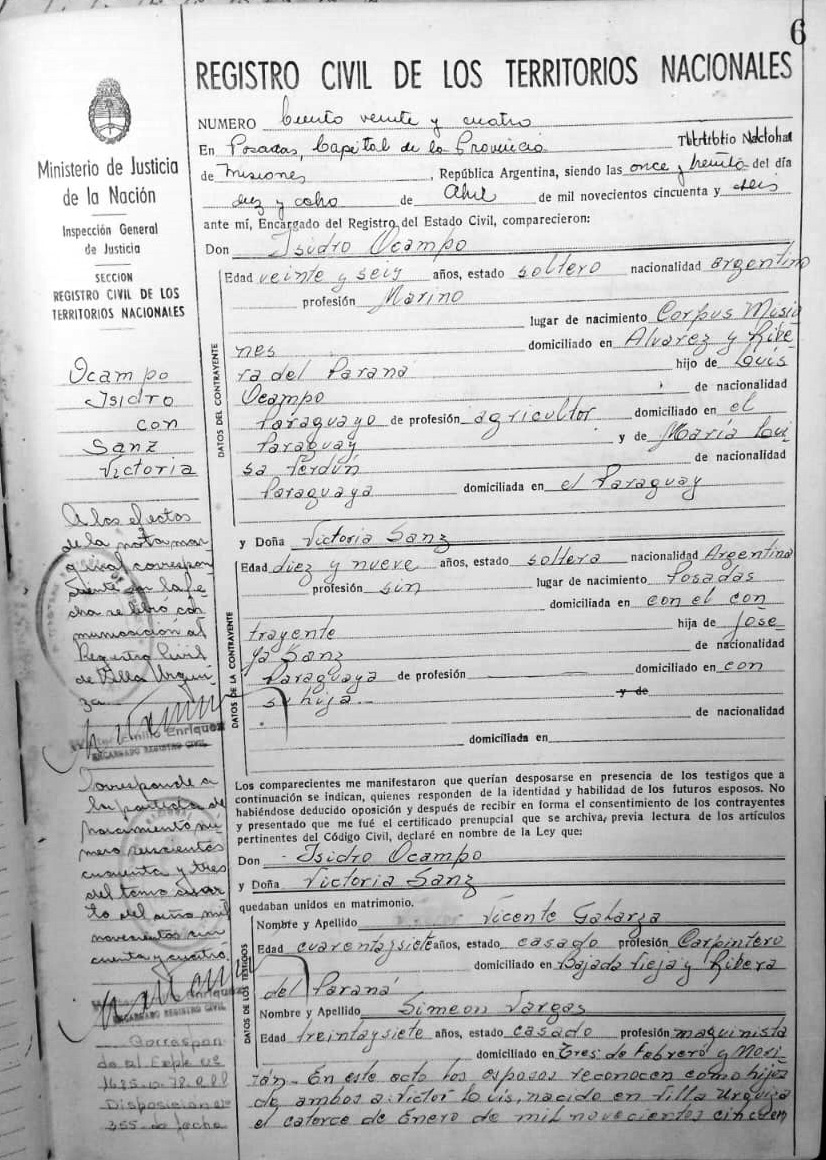 6
REGISTRO CIVIL DE LOS TERRITORIOS NACIONALES
NUMERO Ciento veinte y cuatro
En Posadas, Capital de la Provincia Territorio Nacional
de Misiones, República Argentina, siendo las once y treinta del día
diez y ocho de Abril de mil novecientos cincuenta y seis
ante mí, Encargado del Registro del Estado Civil, comparecieron:
Don Isidro Ocampo
DATOS DEL CONTRAYENTE
Edad veinte y seis años, estado soltero nacionalidad argentino
profesión Marino
lugar de nacimiento Corpus Misio
nes domiciliado en Alvarez y Ribe
ra del Paraná hijo de Louis
Ocampo de nacionalidad
Paraguayo de profesión agricultor domiciliado en el
Paraguay y de María Loui
sa Perdún de nacionalidad
Paraguaya domiciliada en el Paraguay
y Doña Victoria Sanz
DATOS DE LA CONTRAYENTE
Edad diez y nueve años, estado soltera nacionalidad Argentina
profesión sin lugar de nacimiento Posadas
domiciliada en con el con
trayente hija de José
fa Sanz de nacionalidad
Paraguaya de profesión domiciliado en con
su hija.- y de
de nacionalidad
domiciliada en
Los comparecientes me manifestaron que querían desposarse en presencia de los testigos que a
continuación se indican, quienes responden de la identidad y habilidad de los futuros esposos. No
habiéndose deducido oposición y después de recibir en forma el consentimiento de los contrayentes
y presentado que me fué el certificado prenupcial que se archiva, previa lectura de los artículos
pertinentes del Código Civil, declaré en nombre de la Ley que:
Don Isidro Ocampo
y Doña Victoria Sanz
quedaban unidos en matrimonio.
DATOS DE LOS TESTIGOS
Nombre y Apellido Vicente Galarza
Edad cuarentaysiete años, estado casado profesión Carpintero
domiciliado en Bajada Vieja y Ribera
del Paraná
Nombre y Apellido Simeon Vargas
Edad treintaysiete años, estado casado profesión maquinista
domiciliado en Tres de Febrero y Mori-
tán.- En este acto los esposos reconocen como hijos
de ambos a: Victor Louis, nacido en Villa Urquiza
el catorce de Enero de mil novecientos cincuen
Ministerio de Justicia
de la Nación
Inspección General
de Justicia
SECCION
REGISTRO CIVIL DE LOS
TERRITORIOS NACIONALES
Ocampo
Isidro
con
Sanz
Victoria
A los efectos
de la nota mar-
ginal correspon
diente con la fe
cha se libró co
municación al
Registro Civil
de Villa Urqui
za
Emilio Enriquez
ENCARGADO REGISTRO CIVIL
Corresponde a
la partida de
nacimiento nú
mero seiscientos
cincuenta y tres
del tomo cuar
to del año mil
novecientos cin
cuenta y cuatro.
Enriquez
ENCARGADO REGISTRO CIVIL
Correspon
de al Expte nº
Disposicion nº
355 de fecha